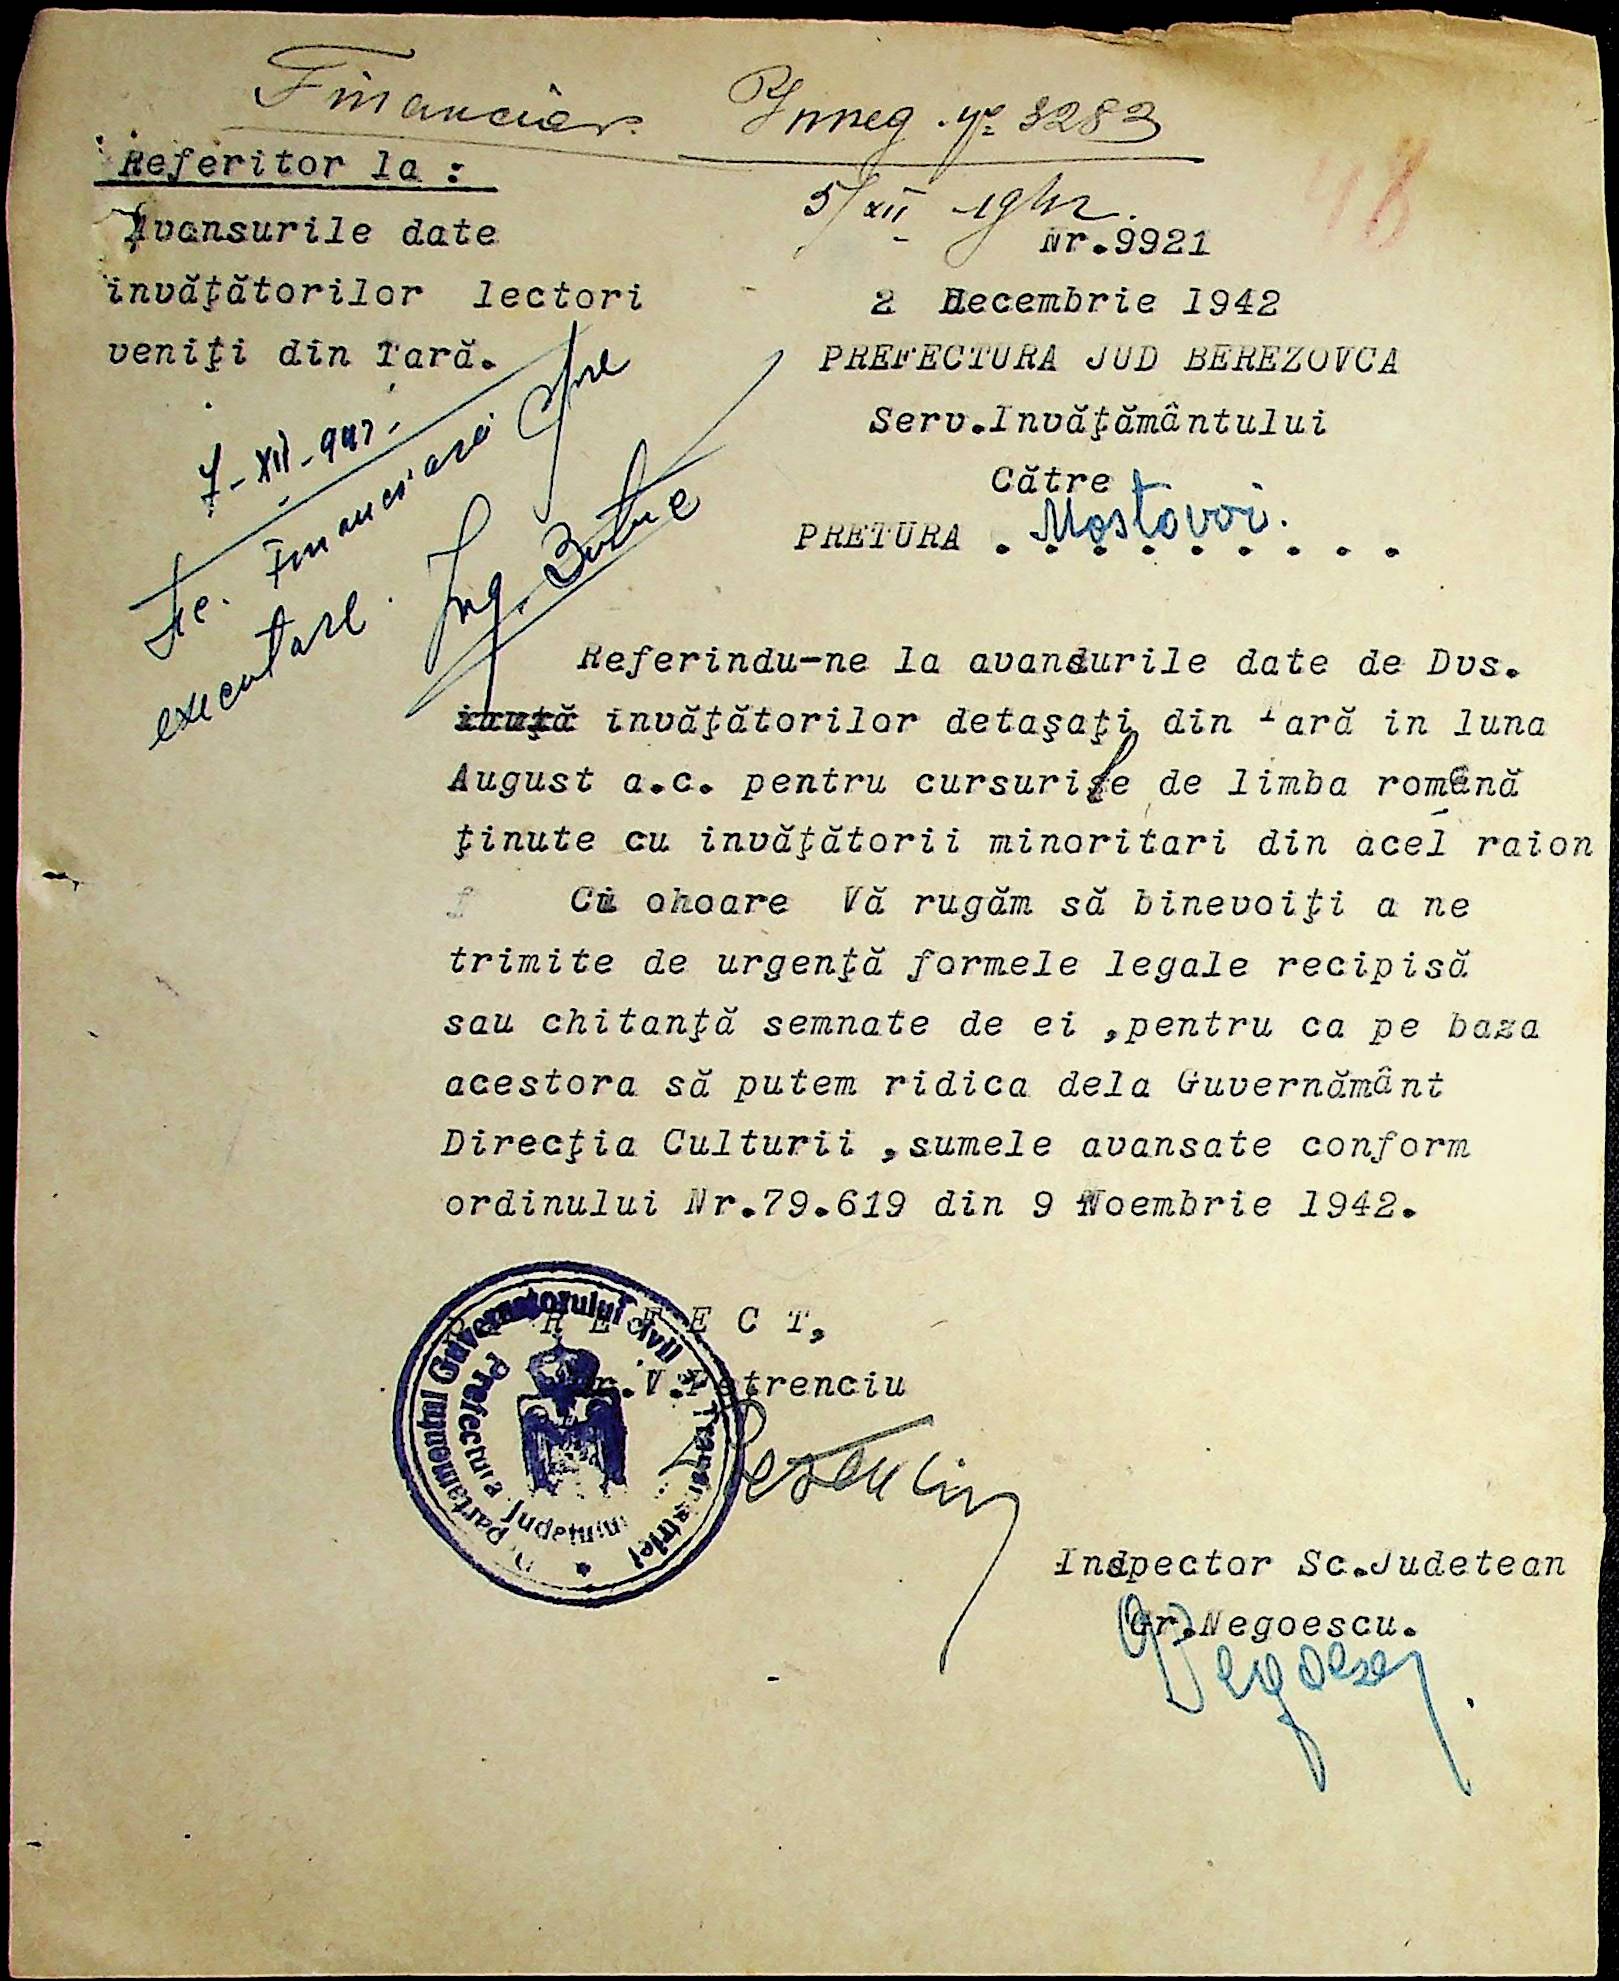 Financiar
Nr. 3283
5/XII 1942.
48
Referitor la :
Avansurile date
invăţătorilor lectori
veniţi din Ţară.
Nr.9921
2 Decembrie 1942
PREFECTURA JUD BEREZOVCA
Serv.Invăţământului
Către
PRETURA . Mostovoi. . . .
7-XII-942-
Financiară
executare. Ing.
Referindu-ne la avansurile date de Dvs.
invăţătorilor detaşaţi din Ţară in luna
August a.c. pentru cursurile de limba română
ţinute cu invăţătorii minoritari din acel raion
Cu onoare Vă rugăm să binevoiţi a ne
trimite de urgenţă formele legale recipisă
sau chitanţă semnate de ei ,pentru ca pe baza
acestora să putem ridica dela Guvernământ
Direcţia Culturii ,sumele avansate conform
ordinului Nr.79.619 din 9 Noembrie 1942.
P R E F E C T,
Dr.V.Petrenciu
Petrenciu
Guvernatorului civil Transnistriei
Prefectura Judeţului
Inspector Sc.Judetean
Gr.Negoescu.
Negoescu